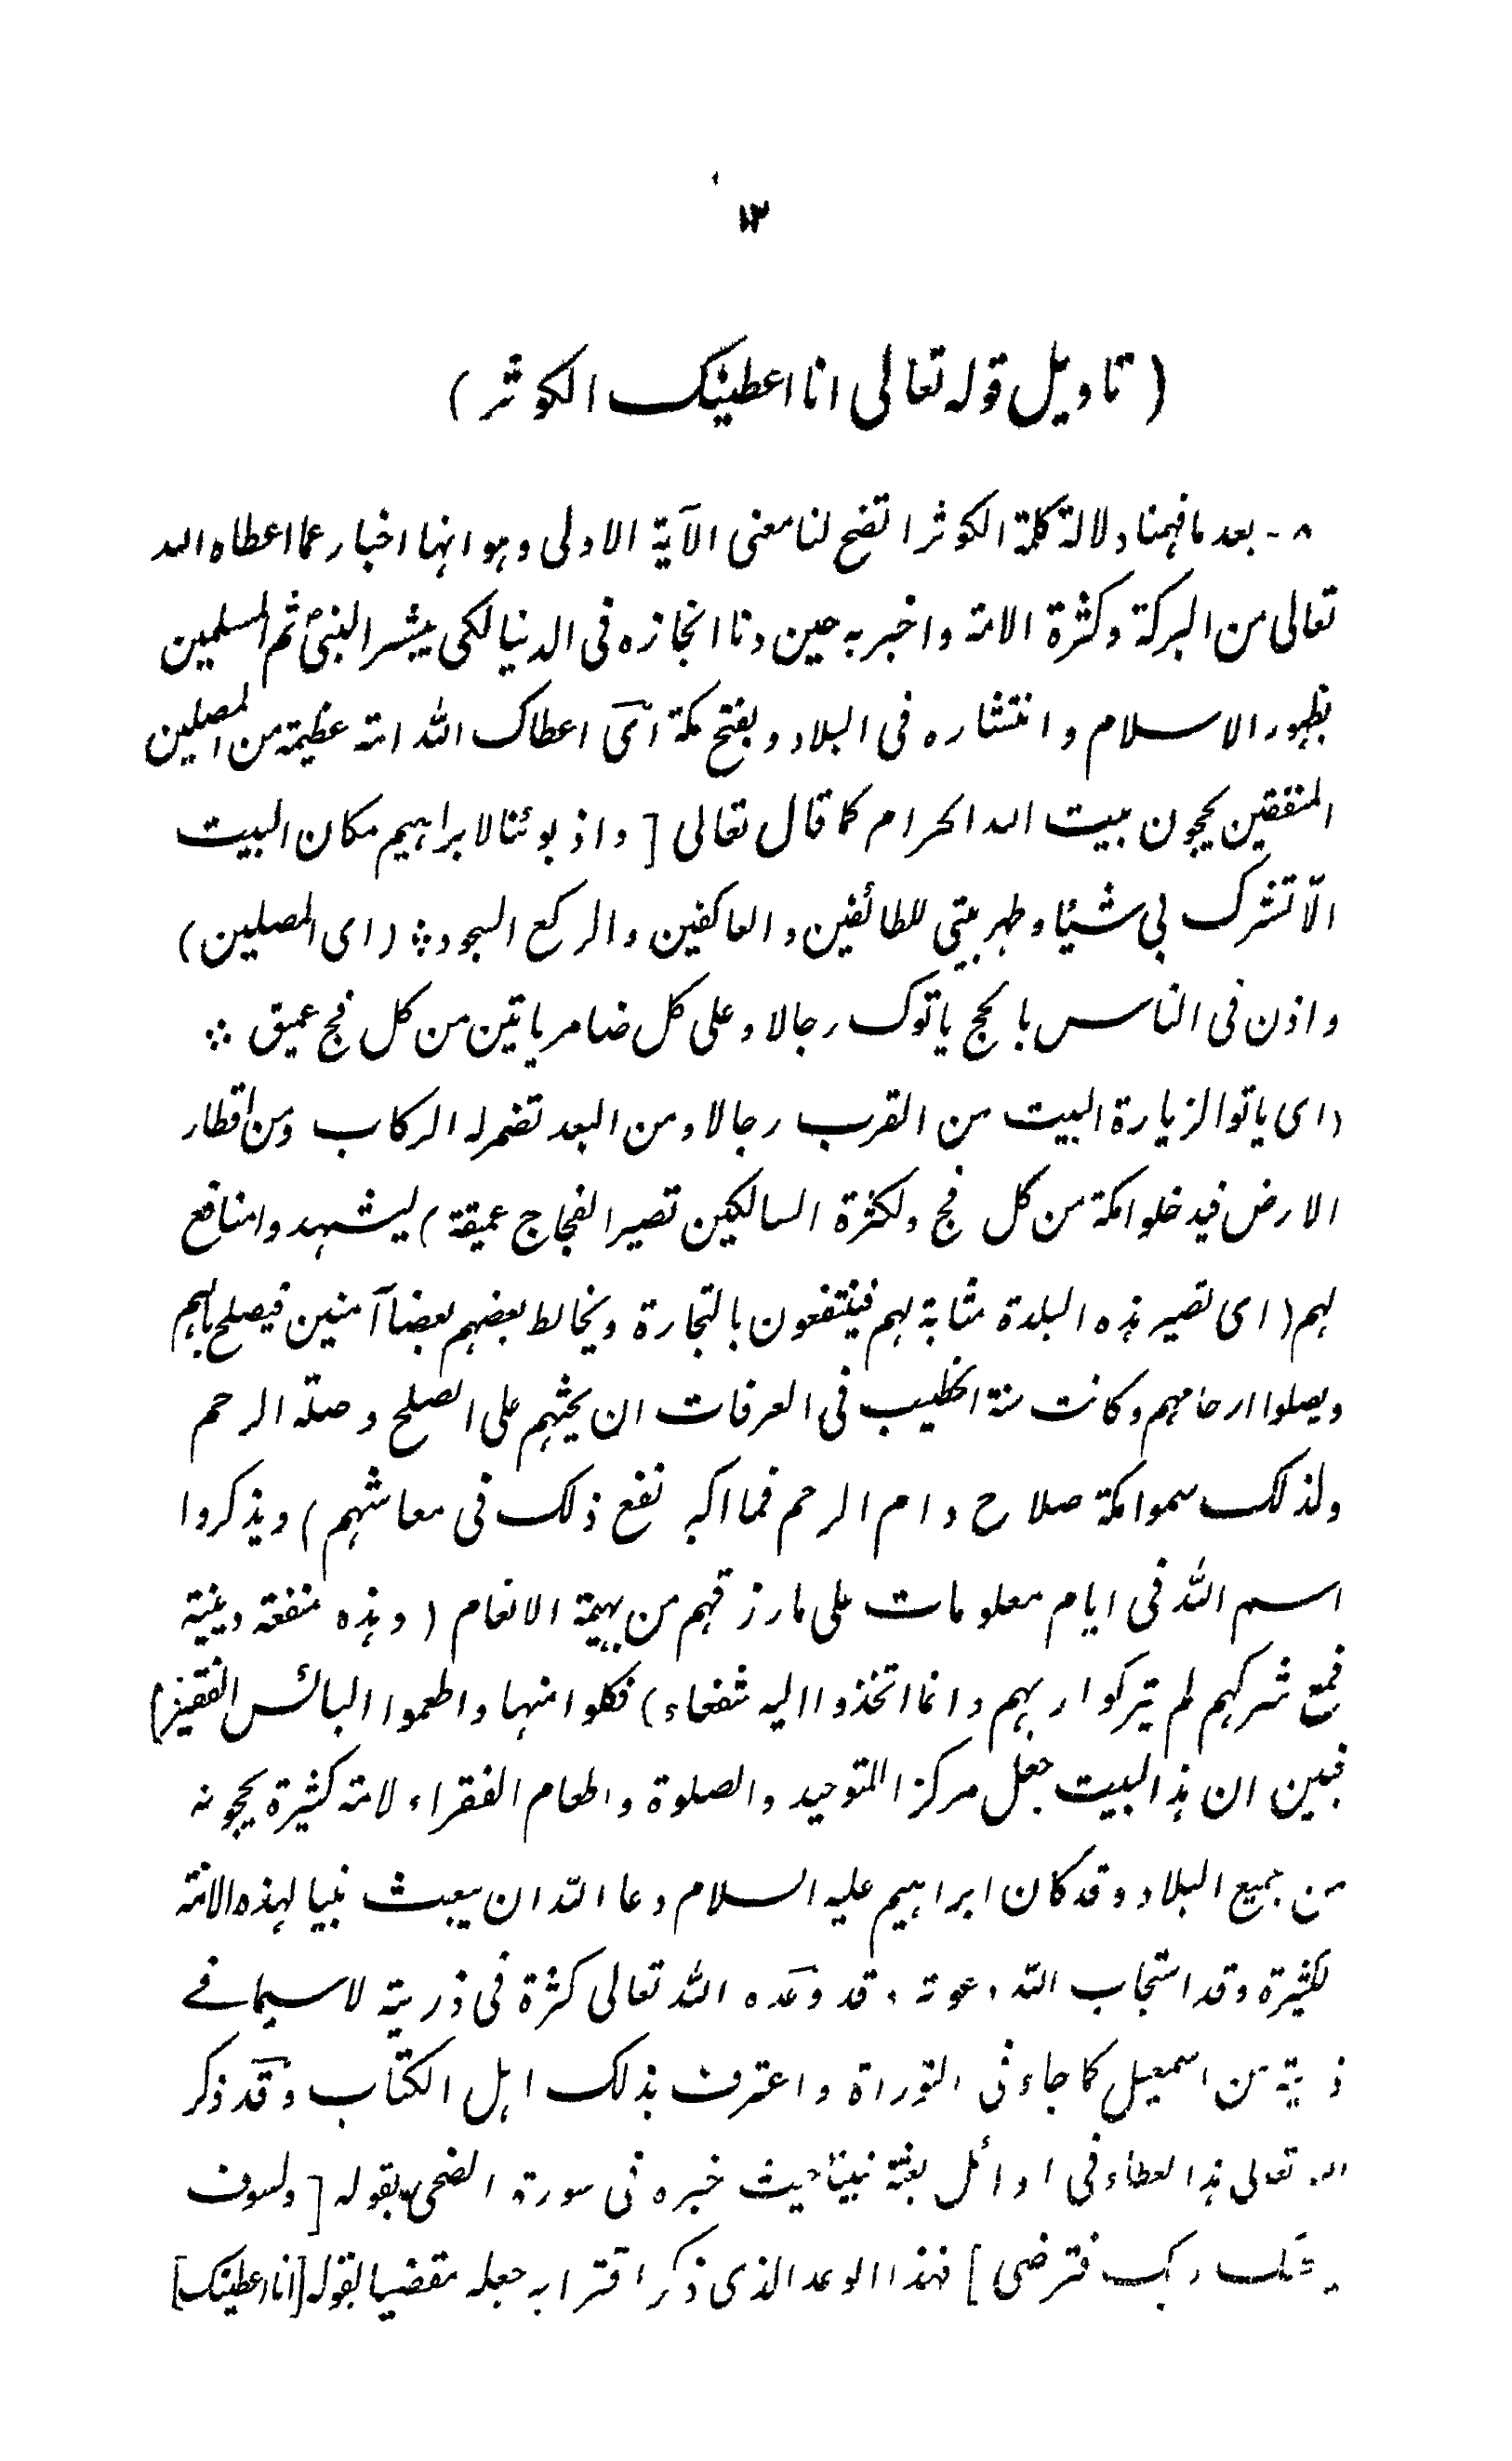 ۱۳
(تاویل قوله تعالی انا اعطینک الکوثر)
۸- بعد ما فهمنا دلالة کلمة الکوثر اتضح لنا معنی الآیة الاولی وهو انها اخبار عما اعطاه الله
تعالی من البرکة وکثرة الامة واخبر به حین دنا انجازه فی الدنیا لکی یبشر النبیؐ ثم المسلمین
بظهور الاسلام وانتشاره فی البلاد وبفتح مکة ای اعطاک الله امة عظیمة من المصلین
المنفقین یحجون بیت الله الحرام کما قال تعالی [واذ بوئنا لابراهیم مکان البیت
الّا تشرک بی شیئا وطهر بیتی للطائفین والعاکفین والرکع السجود؞ (ای المصلین)
واذن فی الناس بالحج یاتوک رجالا وعلی کل ضامر یاتین من کل فج عمیق ؞
(ای یاتوا لزیارة البیت من القرب رجالا ومن البعد تضمر له الرکاب ومن اقطار
الارض فیدخلوا مکة من کل فج ولکثرة السالکین تصیر الفجاج عمیقة) لیشهدوا منافع
لهم (ای تصیر هذه البلدة مثابة لهم فینتفعون بالتجارة ویخالط بعضهم بعضا آمنین فیصلح بالهم
ویصلوا ارحامهم وکانت سنة الخطیب فی العرفات ان یحثهم علی الصلح وصلة الرحم
ولذلک سموا مکة صلاح وام الرحم فما اکبر نفع ذلک فی معاشهم) ویذکروا
اسم الله فی ایام معلومات علی ما رزقهم من بهیمة الانعام (وهذه منفعة دینیة
فمع شرکهم لم یترکوا ربهم وانما اتخذوا الیه شفعاء) فکلوا منها واطعموا البائس الفقیر]
فبین ان هذا البیت جعل مرکزا للتوحید والصلوة واطعام الفقراء لامة کثیرة یحجونه
من جمیع البلاد وقد کان ابراهیم علیه السلام دعا الله ان یبعث نبیا لهذه الامة
الکثیرة وقد استجاب الله دعوته وقد وعده الله تعالی کثرة فی ذریته لا سیما فے
ذریته من اسمعیل کما جاء فی التوراة واعترف بذلک اهل الکتاب وقد ذکر
الله تعالی هذا العطاء فی اوائل بعثة نبینا حیث خبره فی سورة الضحی بقوله [ولسوف
یعطیک ربک فترضی] فهذا الوعد الذی ذکر اقترابه جعله مقضیا لقوله [انا اعطینک]